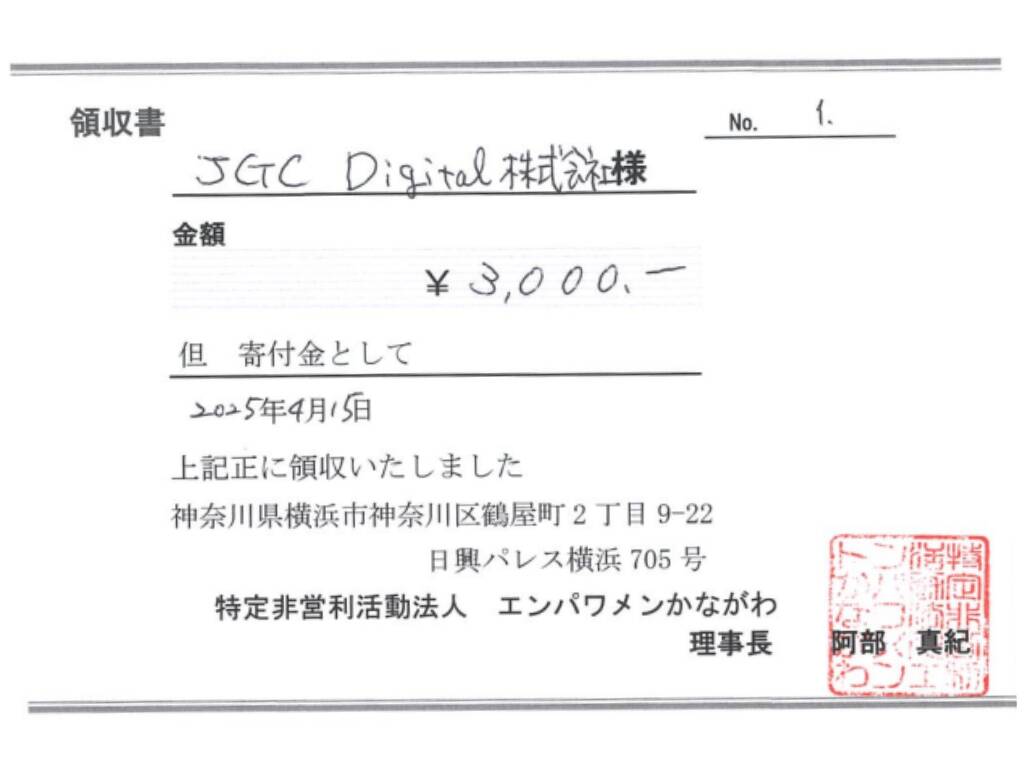 領収書
No. 1.
JGC Digital 株式会社様
金額
¥ 3,000.-
但 寄付金として
2025年4月15日
上記正に領収いたしました
神奈川県横浜市神奈川区鶴屋町2丁目9-22
日興パレス横浜705号
特定非営利活動法人 エンパワメンかながわ
理事長 阿部 真紀